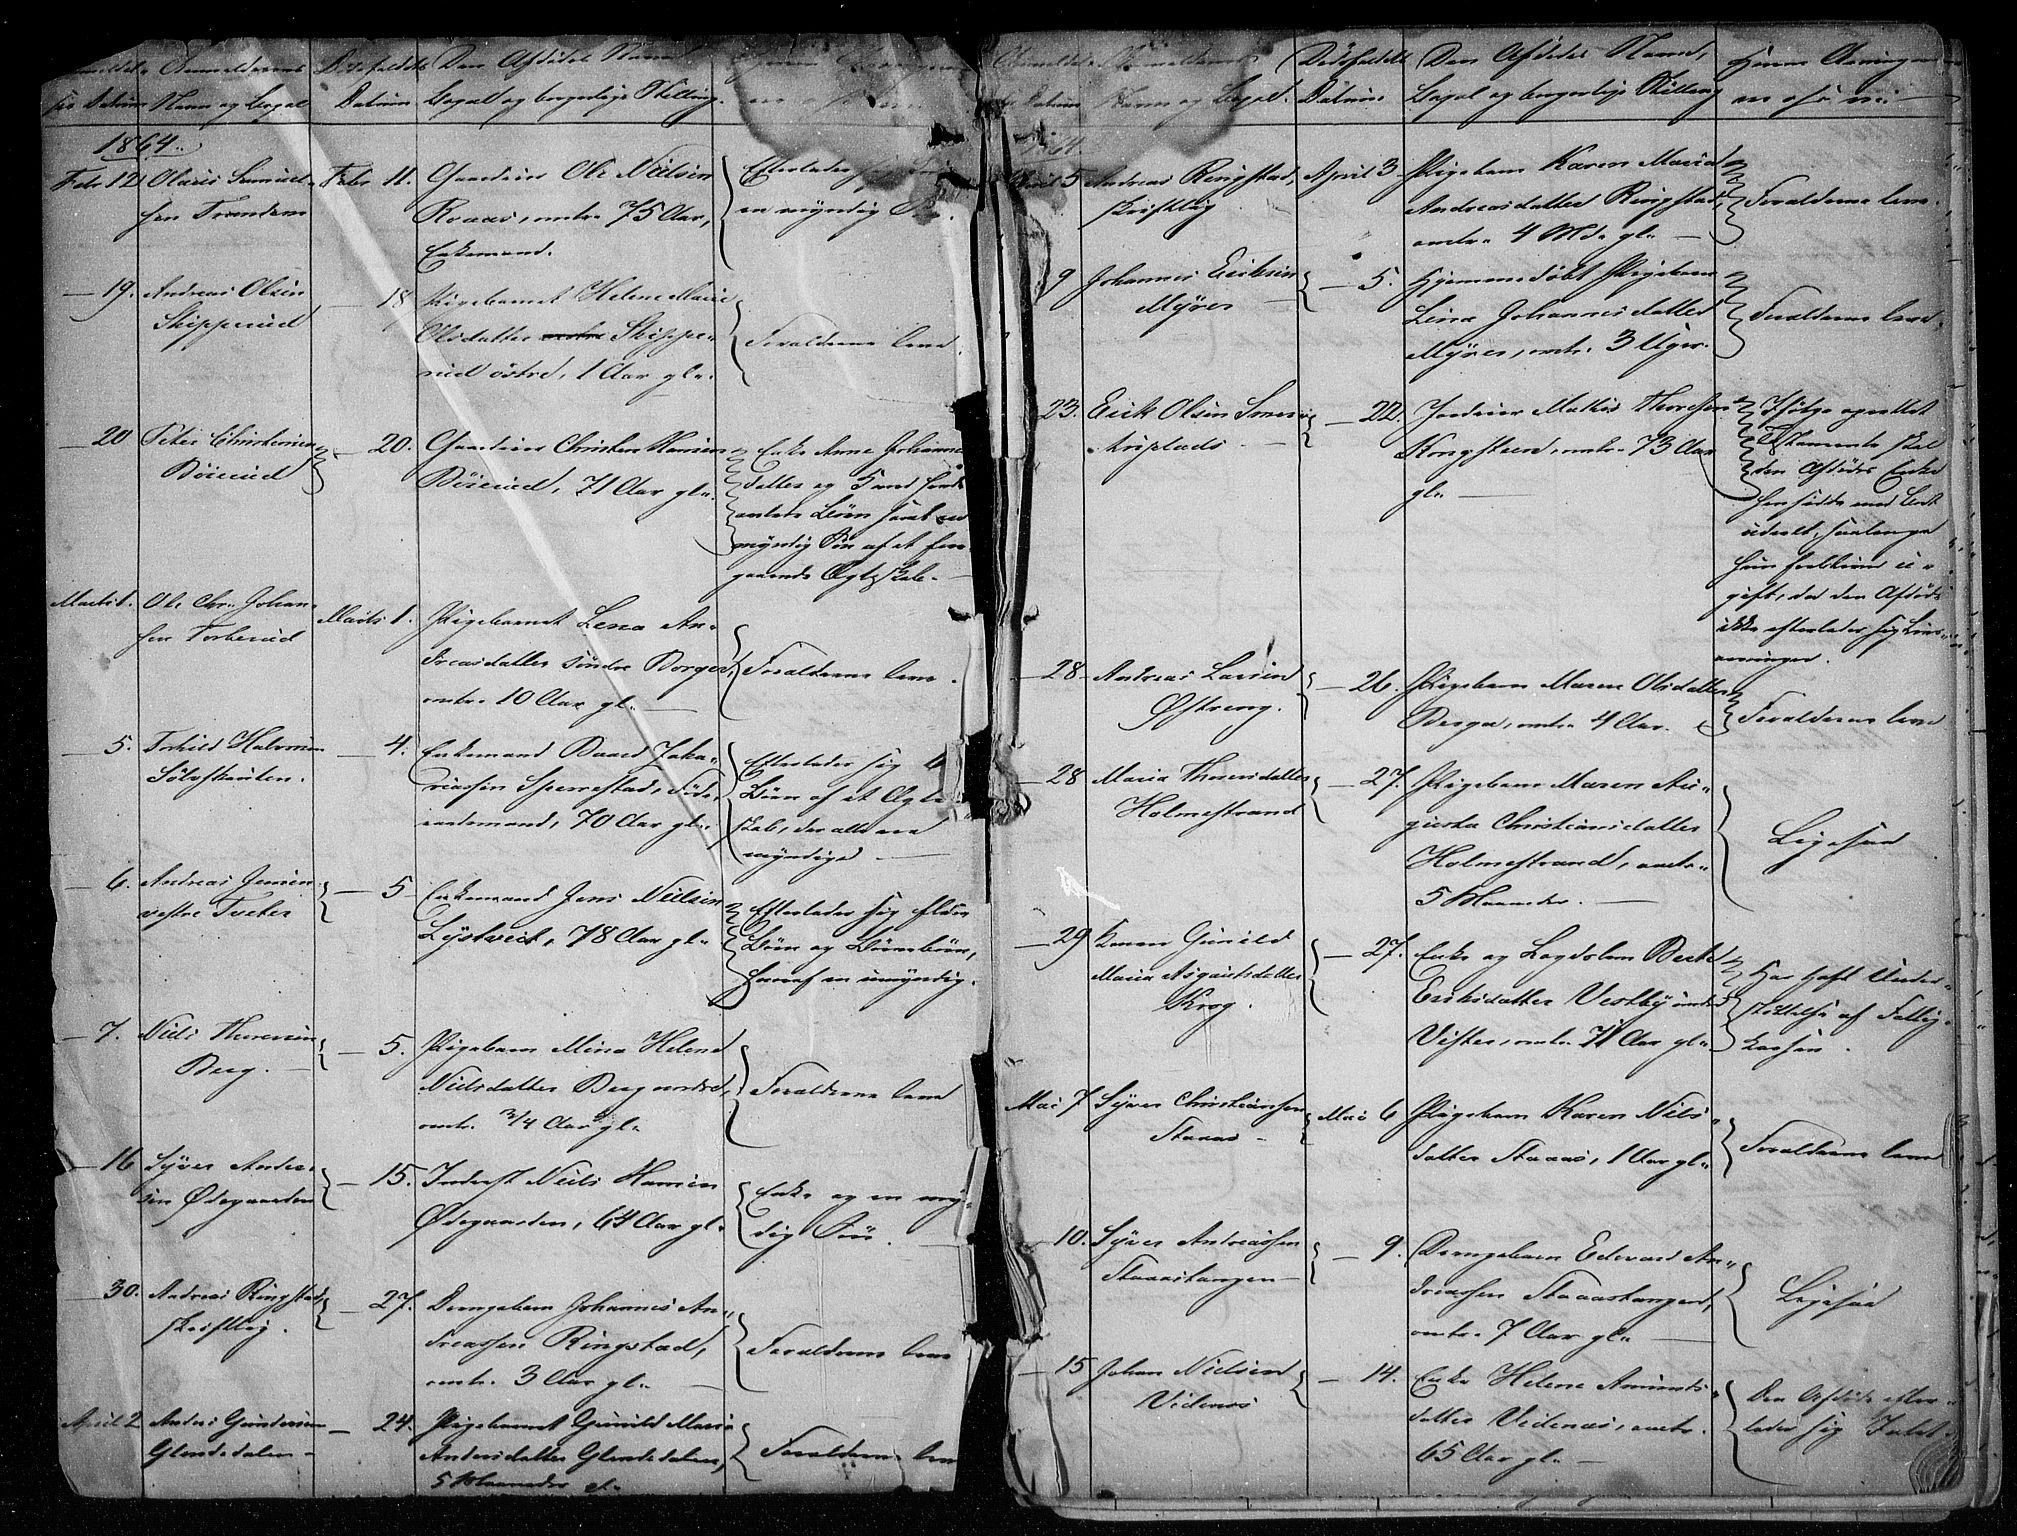 Anmeldel- Anmelderens Dødsfaldets Den Afdødes Navn,
ses Datum Navn og Bopæl Datum. Bopæl og borgerlige Stilling.
1864.
Febr 12 Olaus Samuel-
sen Trondem
Febr 11. Gaardeier Ole Nielsen
Roaas, omtr. 75 Aar,
Enkemand.
Efterlader sig
en myndig
— 19. Andreas Olsen
Skipperud
— 18 Pigebarnet Helene Marie
Olsdatter Skippe-
rud østre, 1 Aar gl.
Forældrene leve.
— 20 Peter Christensen
Böierud
— 20. Gaardeier Christen Hansen
Böierud, 71 Aar gl.
Enke Anne Johanne-
datter og 5 med hende
avlede Börn samt en
myndig Søn af et fore-
gaaende Ægteskab.
Marts 1. Ole Chr. Johan-
sen Torberud
Marts 1. Pigebarnet Lena An-
dreasdatter söndre Borger,
omtr. 10 Aar gl.
Forældrene leve.
— 5. Torkild Halvorsen
Sölvskudten.
— 4. Enkemand Baard Zaka-
riassen Sperrestad, Föde-
raadsmand, 70 Aar gl.
Efterlader sig 6
Börn af et Ægte-
skab, der alle ere
myndige
— 6. Andreas Jensen
vestre Tveter
— 5 Enkemand Jens Nielsen
Lystveit, 78 Aar gl.
Efterlader sig flere
Börn og Börnebörn,
hvoraf en umyndig.
— 7. Niels Thoresen
Berg.
— 5. Pigebarn Mina Helene
Nielsdatter Berg nordre,
omtr. 3/4 Aar gl.
Forældrene leve
— 16 Syver Ander-
sen Ødegaarden
— 15. Inderst Niels Hansen
Ødegaarden, 64 Aar gl.
Enke og en myn-
dig Sön.
— 30. Andreas Ringstad,
skriftlig.
— 27. Drengebarn Johannes An-
dreassen Ringstad,
omtr. 3 Aar gl.
Forældrene leve
April 2 Anders Gundersen
Glendedalen
— 24. Pigebarnet Gunild Marie
Andersdatter Glendedalen,
5 Maaneder gl.
Forældrene leve
Dödsfaldets Den Afdödes Navn,
Datum Navn og Bopæl. Datum Bopæl og borgerlige Stilling
April 5 Andreas Ringstad,
skriftlig
April 3 Pigebarn Karen Marie
Andreasdatter Ringstad,
omtr. 4 Md. gl.
Forældrene leve.
9 Johannes Eriksen
Myrer
— 5. Hjemmedöbt Pigebarn
Lina Johannesdatter
Myrer, omtr. 3 Uger.
Forældrene leve.
23. Erik Olsen Smer-
— 22. Jordeier Mathis Thoresen
Kongsteen, omtr. 73 Aar
gl.
Ifölge oprettet
Testamente skal
den Afdödes Enke
hensidde med Boet
udeelt, saalenge
hun forbliver u-
gift, da den Afdöde
ikke efterlader sig Livs-
arvinger.
— 28 Andreas Larsen
Østreng.
— 26. Pigebarn Maren Olsdatter
Berger, omtr. 4 Aar.
Forældrene leve
— 28 Maria Thoresdatter
Holmestrand
— 27. Pigebarn Maren Au-
gusta Christiansdatter
Holmestrand, omtr.
5 Maaneder.
Ligesaa
— 29 Karen Gunild
Maria Asgautsdatter
Krog.
— 27. Enke og Lægdslem Berte
Eriksdatter Vestby under
Vister, omtr. 71 Aar gl.
Har havt Under-
stöttelse af Fattig-
kassen.
Mai 7 Syver Christiansen
Staaas
Mai 6 Pigebarn Karen Niels-
datter Staaas, 1 Aar gl.
Forældrene leve
— 10. Syver Andreassen
Staaastangen
— 9. Drengebarn Edvard An-
dreassen Staaastangen,
omtr. 7 Aar gl.
Ligesaa
— 15 Johan Nielsen
Videnes
— 14. Enke Helene Amunds-
datter Videnes, omtr.
65 Aar gl.
Den Afdöde efter-
lader sig